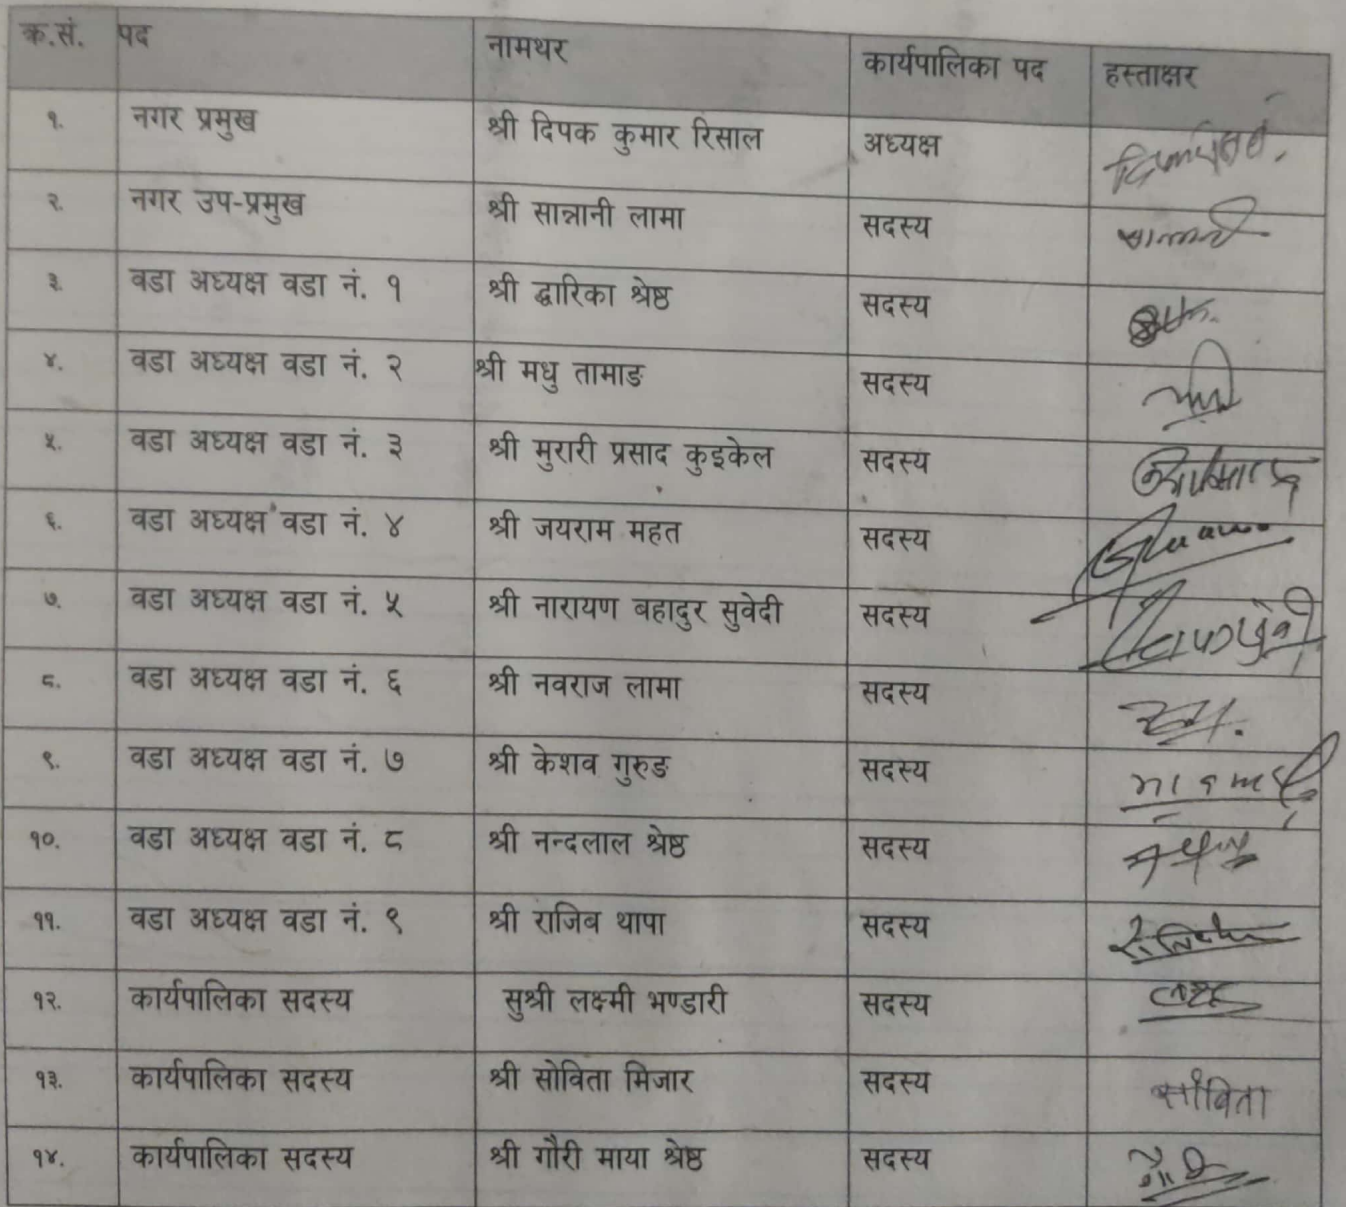 क.सं. पद नामथर कार्यपालिका पद हस्ताक्षर
१. नगर प्रमुख श्री दिपक कुमार रिसाल अध्यक्ष
२. नगर उप-प्रमुख श्री सान्नानी लामा सदस्य
३. वडा अध्यक्ष वडा नं. १ श्री द्धारिका श्रेष्ठ सदस्य
४. वडा अध्यक्ष वडा नं. २ श्री मधु तामाङ सदस्य
५. वडा अध्यक्ष वडा नं. ३ श्री मुरारी प्रसाद कुइकेल सदस्य
६. वडा अध्यक्ष वडा नं. ४ श्री जयराम महत सदस्य
७. वडा अध्यक्ष वडा नं. ५ श्री नारायण बहादुर सुवेदी सदस्य
८. वडा अध्यक्ष वडा नं. ६ श्री नवराज लामा सदस्य
९. वडा अध्यक्ष वडा नं. ७ श्री केशव गुरुङ सदस्य
१०. वडा अध्यक्ष वडा नं. ८ श्री नन्दलाल श्रेष्ठ सदस्य
११. वडा अध्यक्ष वडा नं. ९ श्री राजिब थापा सदस्य
१२. कार्यपालिका सदस्य सुश्री लक्ष्मी भण्डारी सदस्य
१३. कार्यपालिका सदस्य श्री सोविता मिजार सदस्य सोबिता
१४. कार्यपालिका सदस्य श्री गौरी माया श्रेष्ठ सदस्य